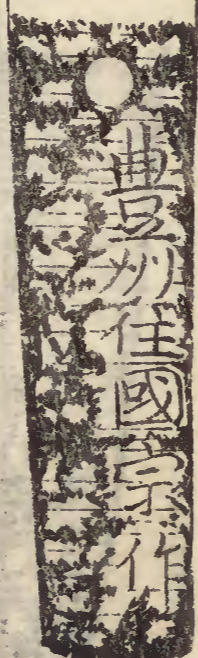 豊州住國宗作